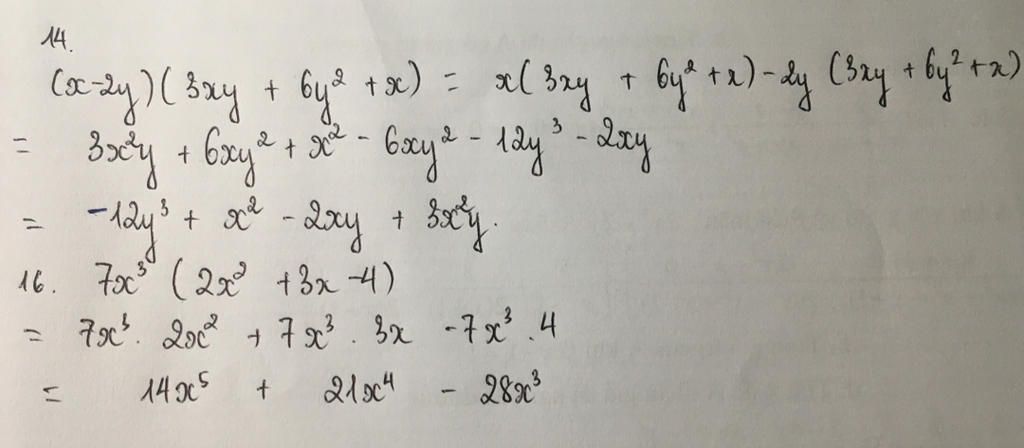 14.
(x-2y)(3xy + 6y² + x) = x(3xy + 6y² + x) - 2y (3xy + 6y² + x)
= 3x²y + 6xy² + x² - 6xy² - 12y³ - 2xy
= -12y³ + x² - 2xy + 3x²y.
16. 7x³ (2x² + 3x - 4)
= 7x³. 2x² + 7x³ . 3x - 7x³ . 4
= 14x⁵ + 21x⁴ - 28x³